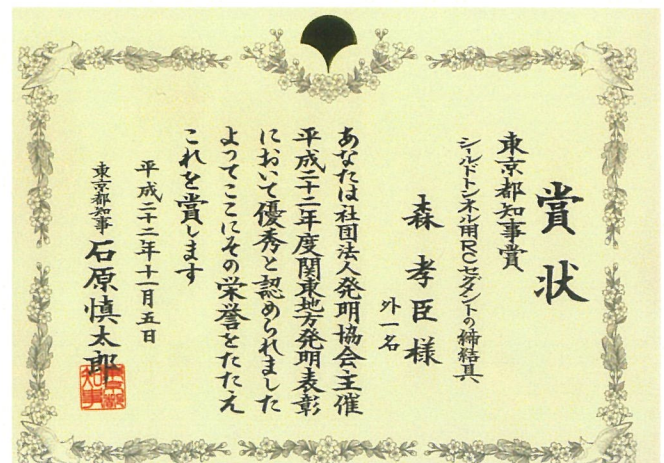 賞状
東京都知事賞
シールドトンネル用RCセグメントの締結具
森 孝臣様
外一名
あなたは社団法人発明協会主催
平成二十二年度関東地方発明表彰
において優秀と認められました
よってここにその栄誉をたたえ
これを賞します
平成二十二年十一月五日
東京都知事 石原慎太郎